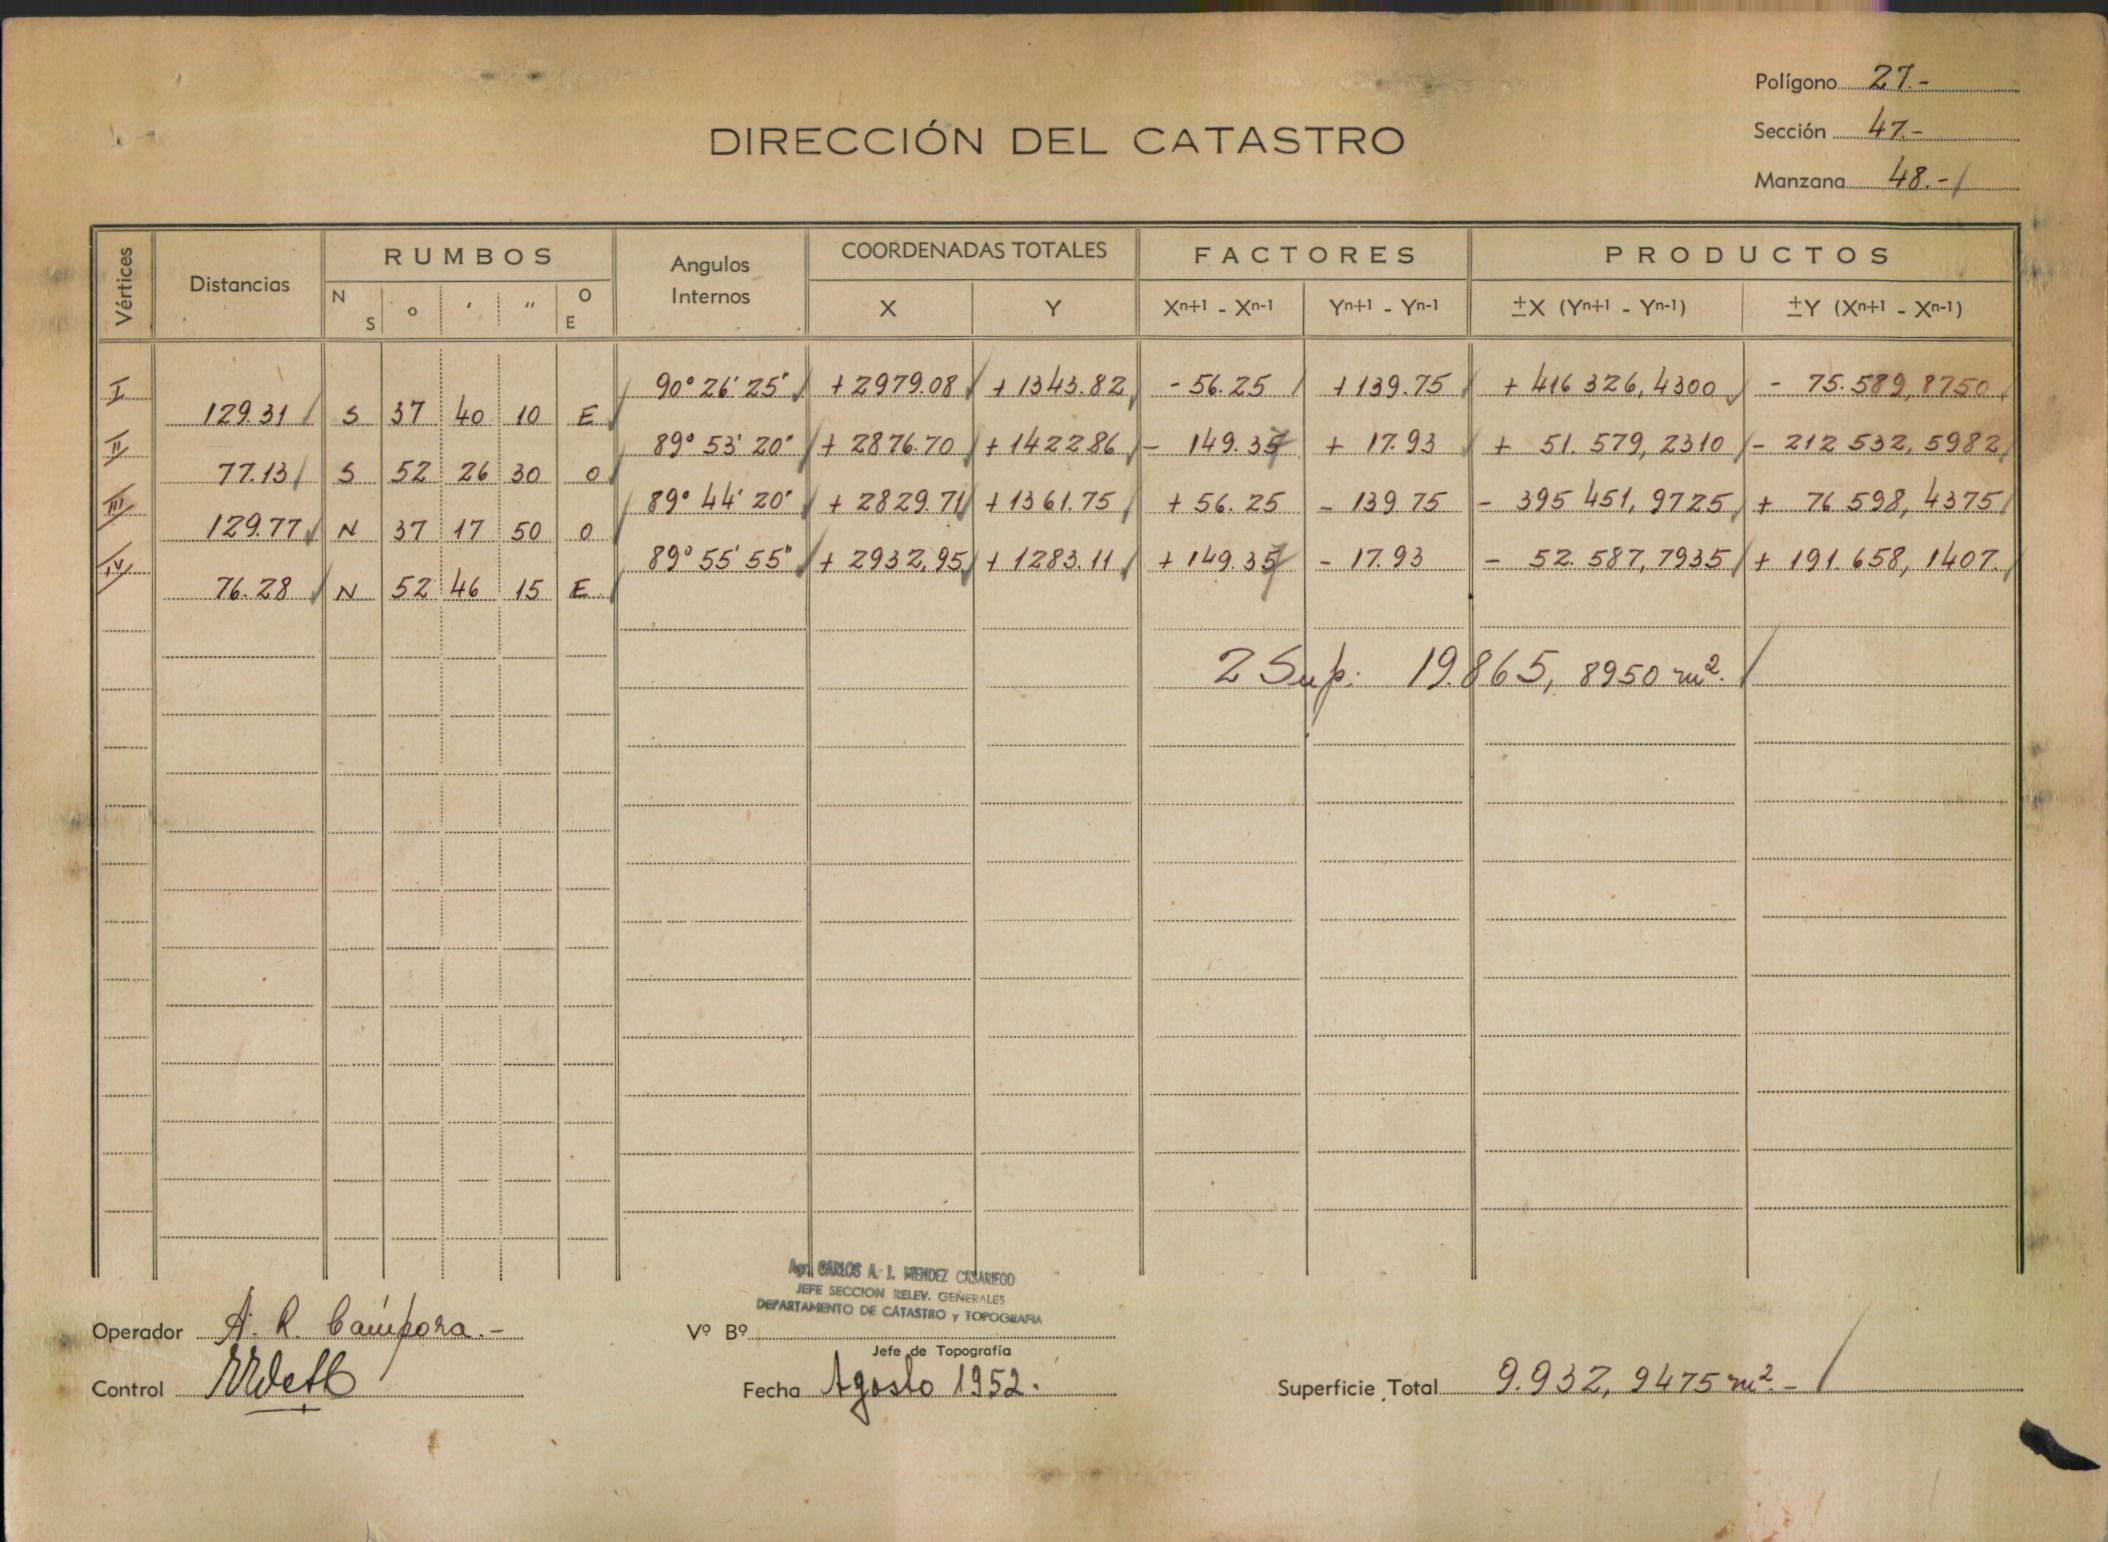 Polígono 27.-
DIRECCIÓN DEL CATASTRO
Sección 47.-
Manzana 48.-
Vértices Distancias RUMBOS Angulos Internos COORDENADAS TOTALES FACTORES PRODUCTOS
N S o ' " O E X Y Xn+1 - Xn-1 Yn+1 - Yn-1 ±X (Yn+1 - Yn-1) ±Y (Xn+1 - Xn-1)
I 90° 26' 25" + 2979.08 + 1343.82 - 56.25 + 139.75 + 416 326,4300 - 75.589,8750
129.31 S 37 40 10 E
II 89° 53' 20" + 2876.70 + 1422.86 - 149.37 + 17.93 + 51.579,2310 - 212 532,5982
77.13 S 52 26 30 O
III 89° 44' 20" + 2829.71 + 1361.75 + 56.25 - 139.75 - 395 451,9725 + 76 598,4375
129.77 N 37 17 50 O
IV 89° 55' 55" + 2932,95 + 1283.11 + 149.37 - 17.93 - 52.587,7935 + 191.658,1407.
76.28 N 52 46 15 E
2 Sup: 19.865, 8950 m².
Agr. CARLOS A. J. MENDEZ CASARIEGO
JEFE SECCION RELEV. GENERALES
DEPARTAMENTO DE CATASTRO y TOPOGRAFIA
Operador A. R. Cámpora.-
Vº Bº
Jefe de Topografía
Control
Fecha Agosto 1952.
Superficie Total 9.932, 9475 m².-